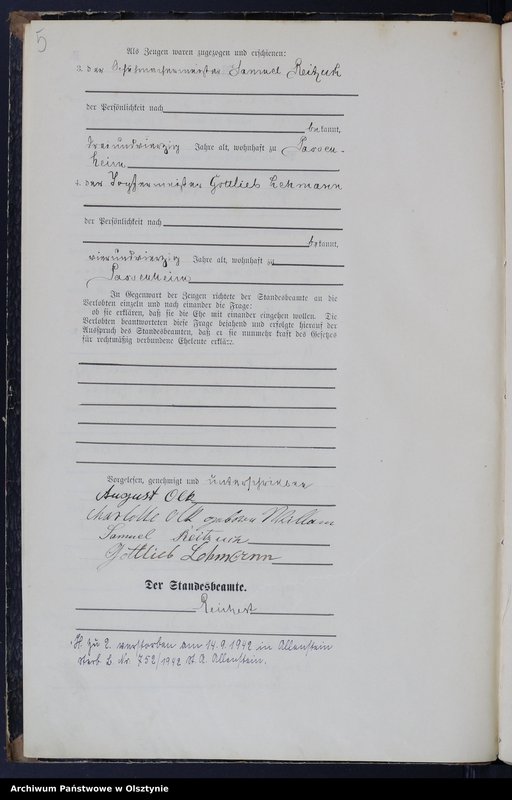 5
Als Zeugen waren zugezogen und erschienen:
3. der Schuhmachermeister Samuel Reitzuck
der Persönlichkeit nach
bekannt,
dreiundvierzig Jahre alt, wohnhaft zu Passen-
heim
4. der Töpfermeister Gottlieb Lehmann
der Persönlichkeit nach
bekannt,
vierundvierzig Jahre alt, wohnhaft zu
Passenheim
In Gegenwart der Zeugen richtete der Standesbeamte an die
Verlobten einzeln und nach einander die Frage:
ob sie erklären, daß sie die Ehe mit einander eingehen wollen. Die
Verlobten beantworteten diese Frage bejahend und erfolgte hierauf der
Ausspruch des Standesbeamten, daß er sie nunmehr kraft des Gesetzes
für rechtmäßig verbundene Eheleute erkläre.
Vorgelesen, genehmigt und unterschrieben
August Olk
Charlotte Olk geborne
Samuel Reitzuck
Gottlieb Lehmann
Der Standesbeamte.
Reichert
zu 2. verstorben am 14.9.1942 in Allenstein
Sterb. b. Nr. 752/1942 St. A. Allenstein.
Archiwum Państwowe w Olsztynie